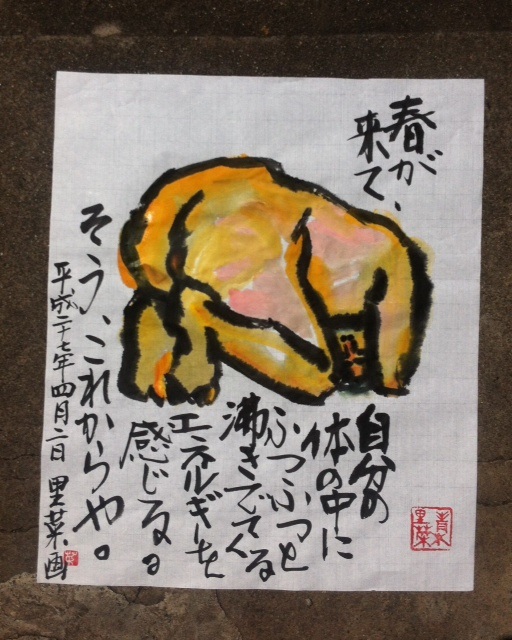 春が、
来て、
自分の
体の中に
ふつふつと
沸きでてくる
エネルギーを
感じる。
そう、これからや。
平成二十七年四月二日 里菜画
青木
里菜